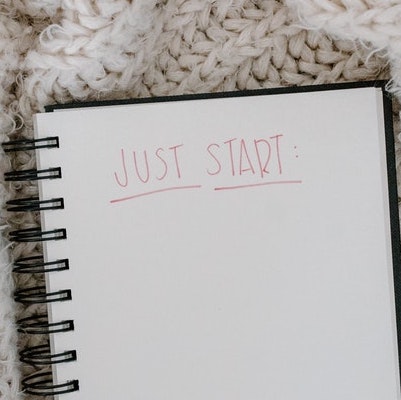 JUST START: